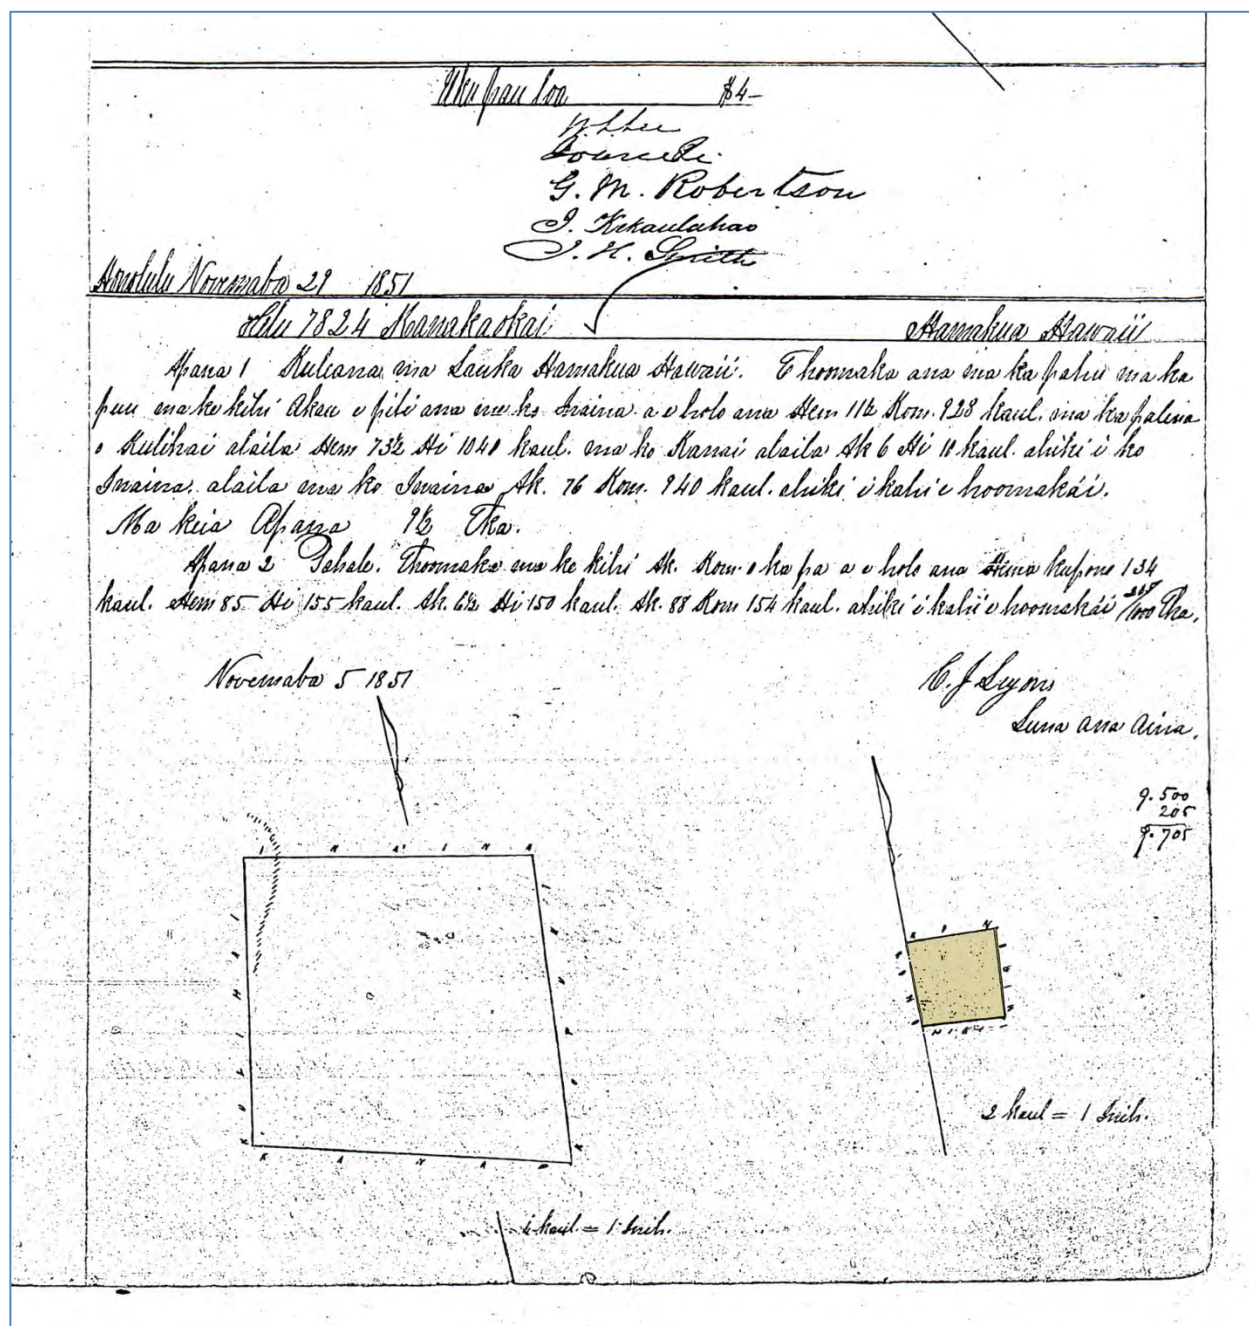 Uku pau loa $4–
G. M. Robertson
J. Kekaulahao
J. H. Smith
Honolulu Novemaba 29 1851
Helu 7824 Kamakaokai Hamakua Hawaii
Apana 1 Kuleana ma Lauka Hamakua Hawaii. E hoomaka ana ma ka pahu ma ka
puu ma ke kihi Akau e pili ana me ko Inaina a e holo ana Hem 11½ Kom. 928 kaul. ma ka palena
o Kulihai alaila Hem 73½ Hi 1040 kaul. ma ko Kanai alaila Ak 6 Hi kaul. ahiki i ko
Inaina. alaila ma ko Inaina Ak. 76 Kom. 940 kaul. ahiki i kahi e hoomakai.
Ma keia Apana 9½ Eka.
Apana 2 Pahale. E hoomaka ma ke kihi Ak. Kom. o ka pa a e holo ana Hema kupono 134
kaul. Hem 85 Hi 155 kaul. Ak. 6½ Hi 150 kaul. Ak. 88 Kom 154 kaul. ahiki i kahi e hoomakai /1000 Eka.
Novemaba 5 1851
C. J. Lyons
Luna ana aina.
9.500
205
9.705
I N A I N A
K U L I H A I
K A N A I
2 kaul = 1 Inih.
kaul = 1 Inih.